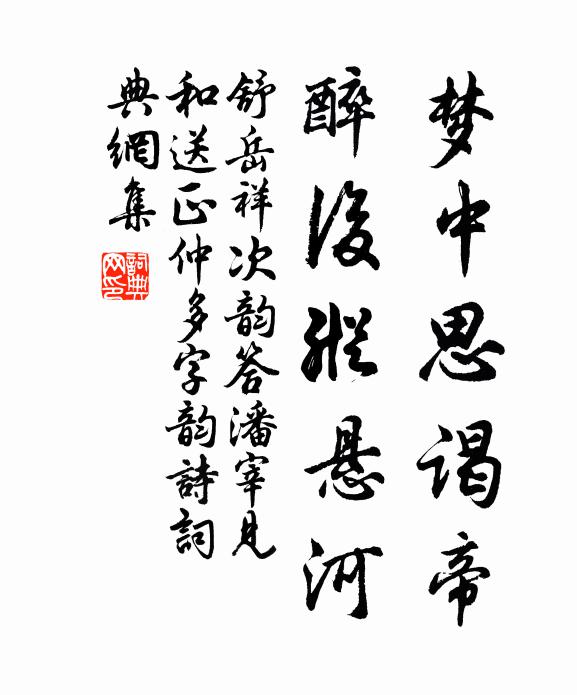 梦中思谒帝
醉後縱悬河
舒岳祥次韵答潘宰见
和送正仲多字韵詩詞
典網集
詞典网印